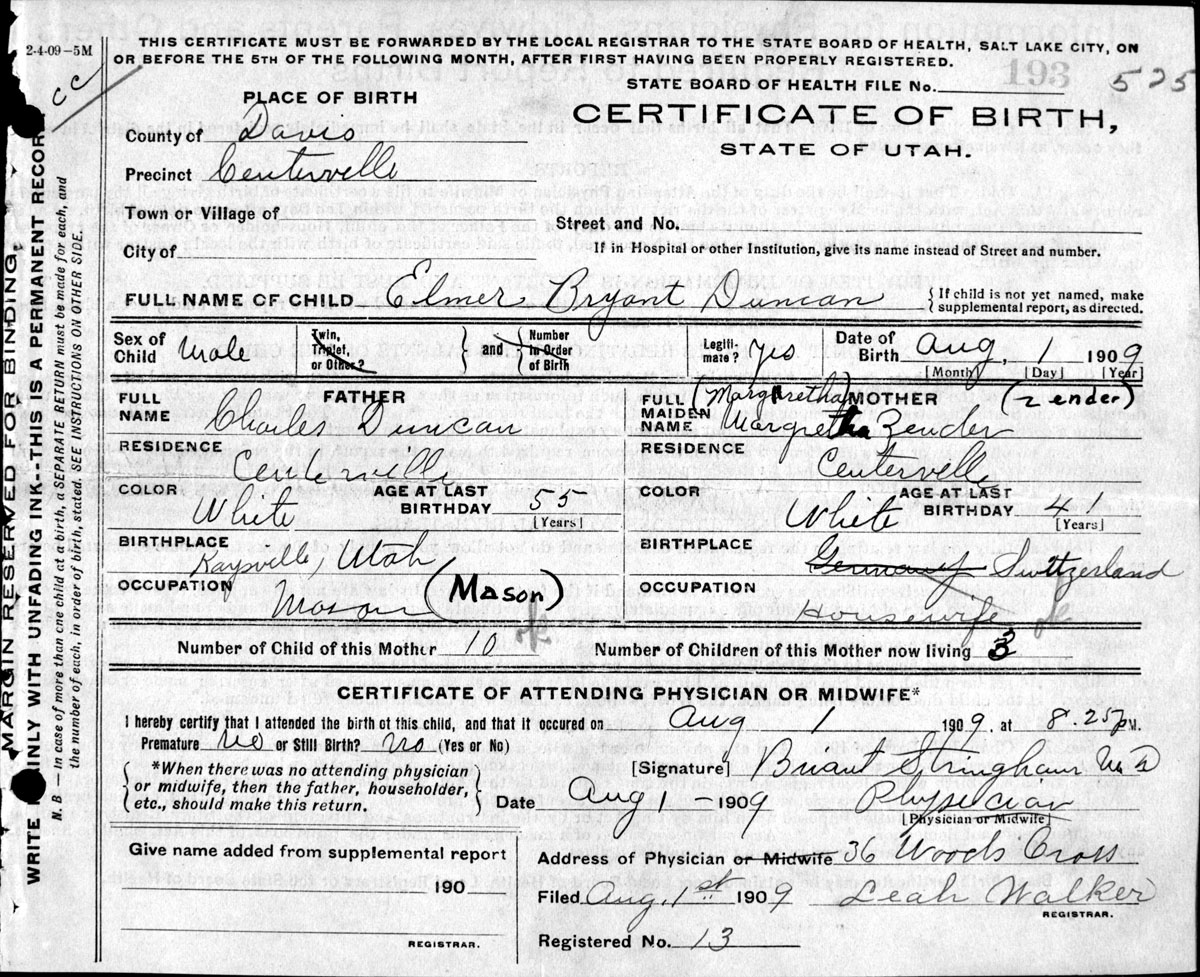 2-4-09-5M
THIS CERTIFICATE MUST BE FORWARDED BY THE LOCAL REGISTRAR TO THE STATE BOARD OF HEALTH, SALT LAKE CITY, ON
OR BEFORE THE 5TH OF THE FOLLOWING MONTH, AFTER FIRST HAVING BEEN PROPERLY REGISTERED.
193
STATE BOARD OF HEALTH FILE No. 525
cc
PLACE OF BIRTH
CERTIFICATE OF BIRTH,
STATE OF UTAH.
County of Davis
Precinct Centerville
Town or Village of
Street and No.
City of
If in Hospital or other Institution, give its name instead of Street and number.
FULL NAME OF CHILD Elmer Bryant Duncan
{If child is not yet named, make
supplemental report, as directed.
Sex of Child Male
Twin, Triplet, or Other?
} and {
Number in Order of Birth
Legiti- mate? yes
Date of Birth Aug. 1 1909
[Month] [Day] [Year]
FATHER
FULL NAME Charles Duncan
RESIDENCE Centerville
COLOR White
AGE AT LAST BIRTHDAY 55
[Years]
BIRTHPLACE Kaysville, Utah
OCCUPATION Mason (Mason)
ok
MOTHER
(Margaretha) (Zender)
FULL MAIDEN NAME Margretha Zender
RESIDENCE Centerville
COLOR White
AGE AT LAST BIRTHDAY 41
[Years]
BIRTHPLACE Germany Switzerland
OCCUPATION Housewife
ok
Number of Child of this Mother 10
Number of Children of this Mother now living 3
CERTIFICATE OF ATTENDING PHYSICIAN OR MIDWIFE*
I hereby certify that I attended the birth of this child, and that it occured on Aug 1 1909, at 8.25 P M.
Premature No or Still Birth? No (Yes or No)
{*When there was no attending physician
or midwife, then the father, householder,
etc., should make this return.}
[Signature] Briant Stringham M D
Date Aug 1 - 1909 Physician
[Physician or Midwife]
Give name added from supplemental report
190
REGISTRAR.
Address of Physician or Midwife 36 Woods Cross
Filed Aug. 1st 1909 Leah Walker
REGISTRAR.
Registered No. 13
MARGIN RESERVED FOR BINDING.
WRITE PLAINLY WITH UNFADING INK--THIS IS A PERMANENT RECORD
N. B.—In case of more than one child at a birth, a SEPARATE RETURN must be made for each, and
the number of each, in order of birth, stated. SEE INSTRUCTIONS ON OTHER SIDE.